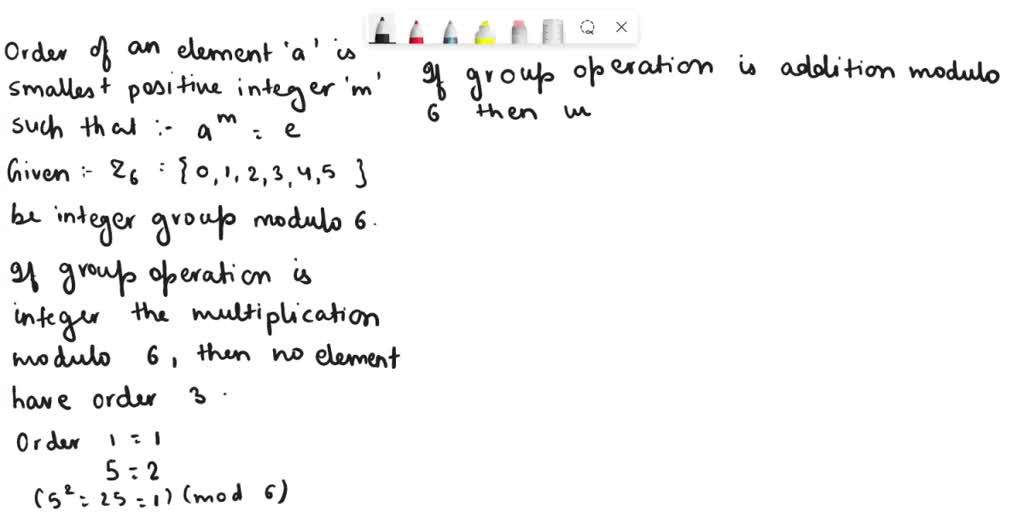 Order of an element 'a' is
smallest positive integer 'm'
such that :- a^m = e
Given :- Z6 = {0,1,2,3,4,5 }
be integer group modulo 6.
If group operation is
integer the multiplication
modulo 6, then no element
have order 3.
Order 1 = 1
5 = 2
(5² = 25 = 1) (mod 6)
If group operation is addition modulo
6 then